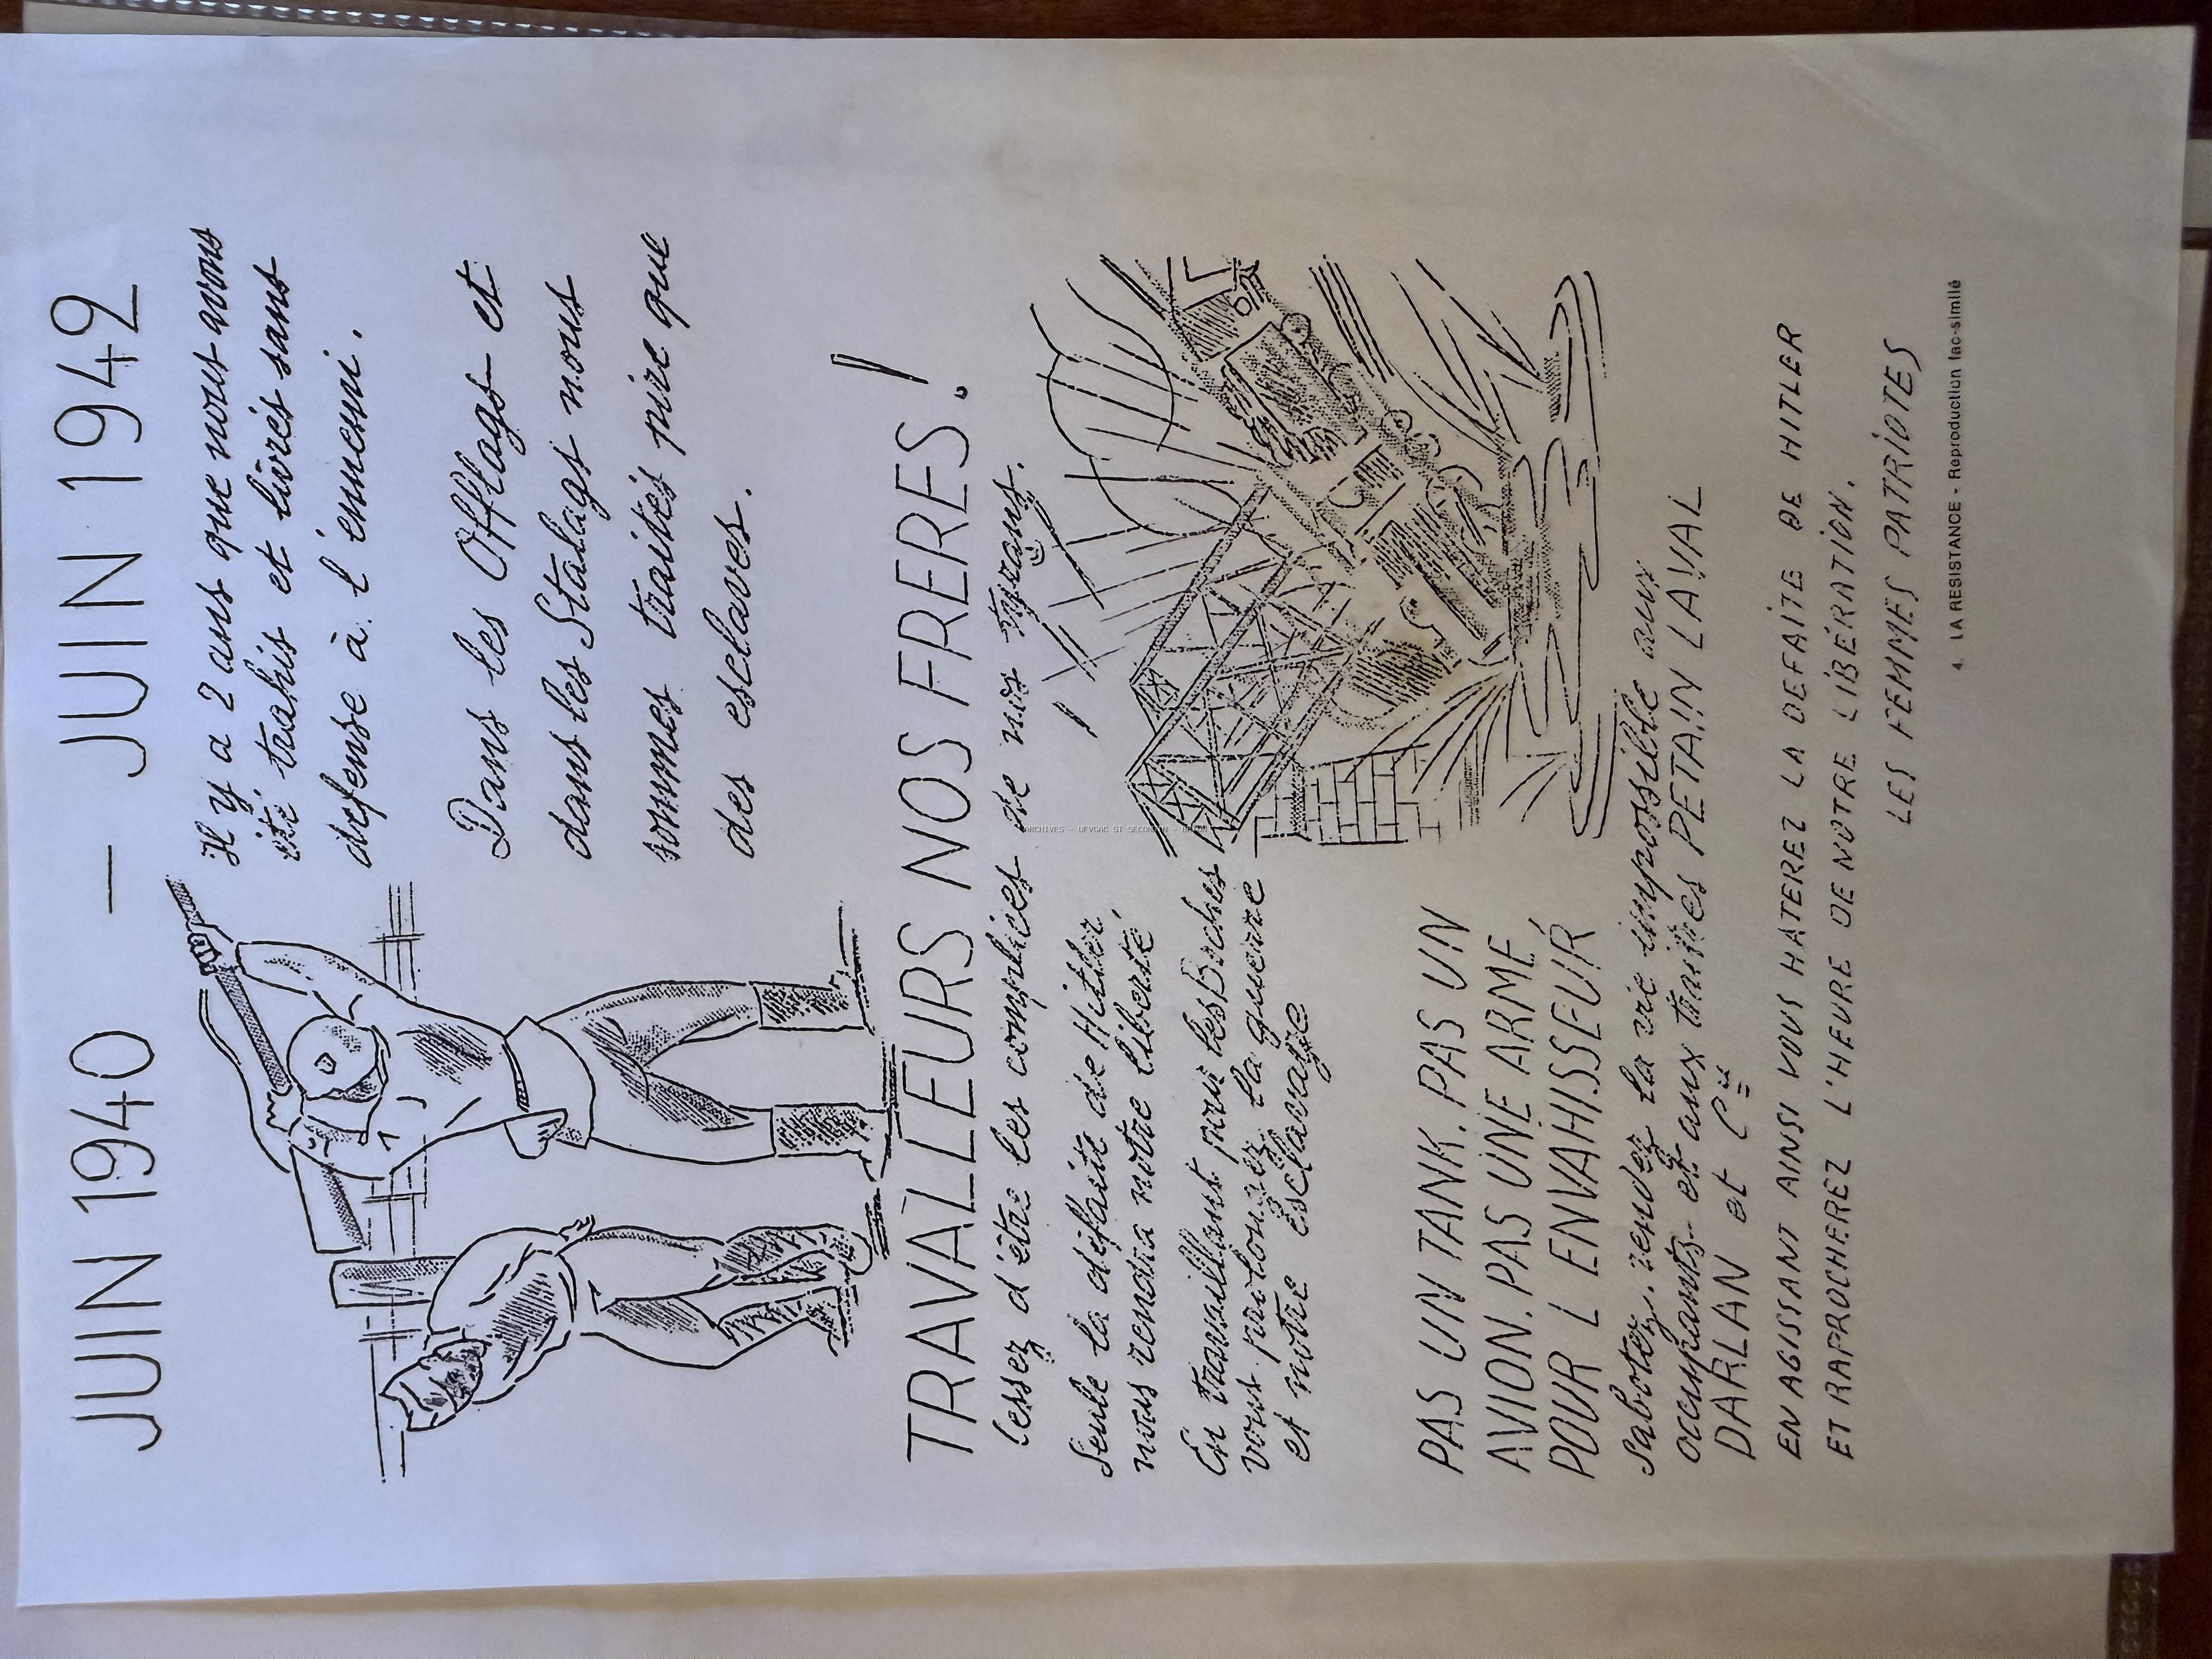 JUIN 1940 — JUIN 1942
Il y a 2 ans que nous avons
été trahis et livrés sans
defense à l'ennemi.
Dans les Offlags et
dans les Stalags nous
sommes traités pire que
des esclaves.
TRAVAILLEURS NOS FRERES !
Cessez d'être les complices de nos tyrans.
Seule la défaite de Hitler,
nous rendra notre liberté
En travaillant pour les Boches
vous prolongez la guerre
et notre esclavage
PAS UN TANK. PAS UN
AVION. PAS UNE ARME,
POUR L'ENVAHISSEUR
Sabotez, rendez la vie impossible aux
occupants et aux traitres PETAIN LAVAL
DARLAN et Cie
EN AGISSANT AINSI VOUS HATEREZ LA DEFAITE DE HITLER
ET RAPROCHEREZ L'HEURE DE NOTRE LIBÉRATION.
LES FEMMES PATRIOTES
4. LA RESISTANCE - Reproduction fac-similé
ARCHIVES - UFVGAC ST SECONDIN - BRION